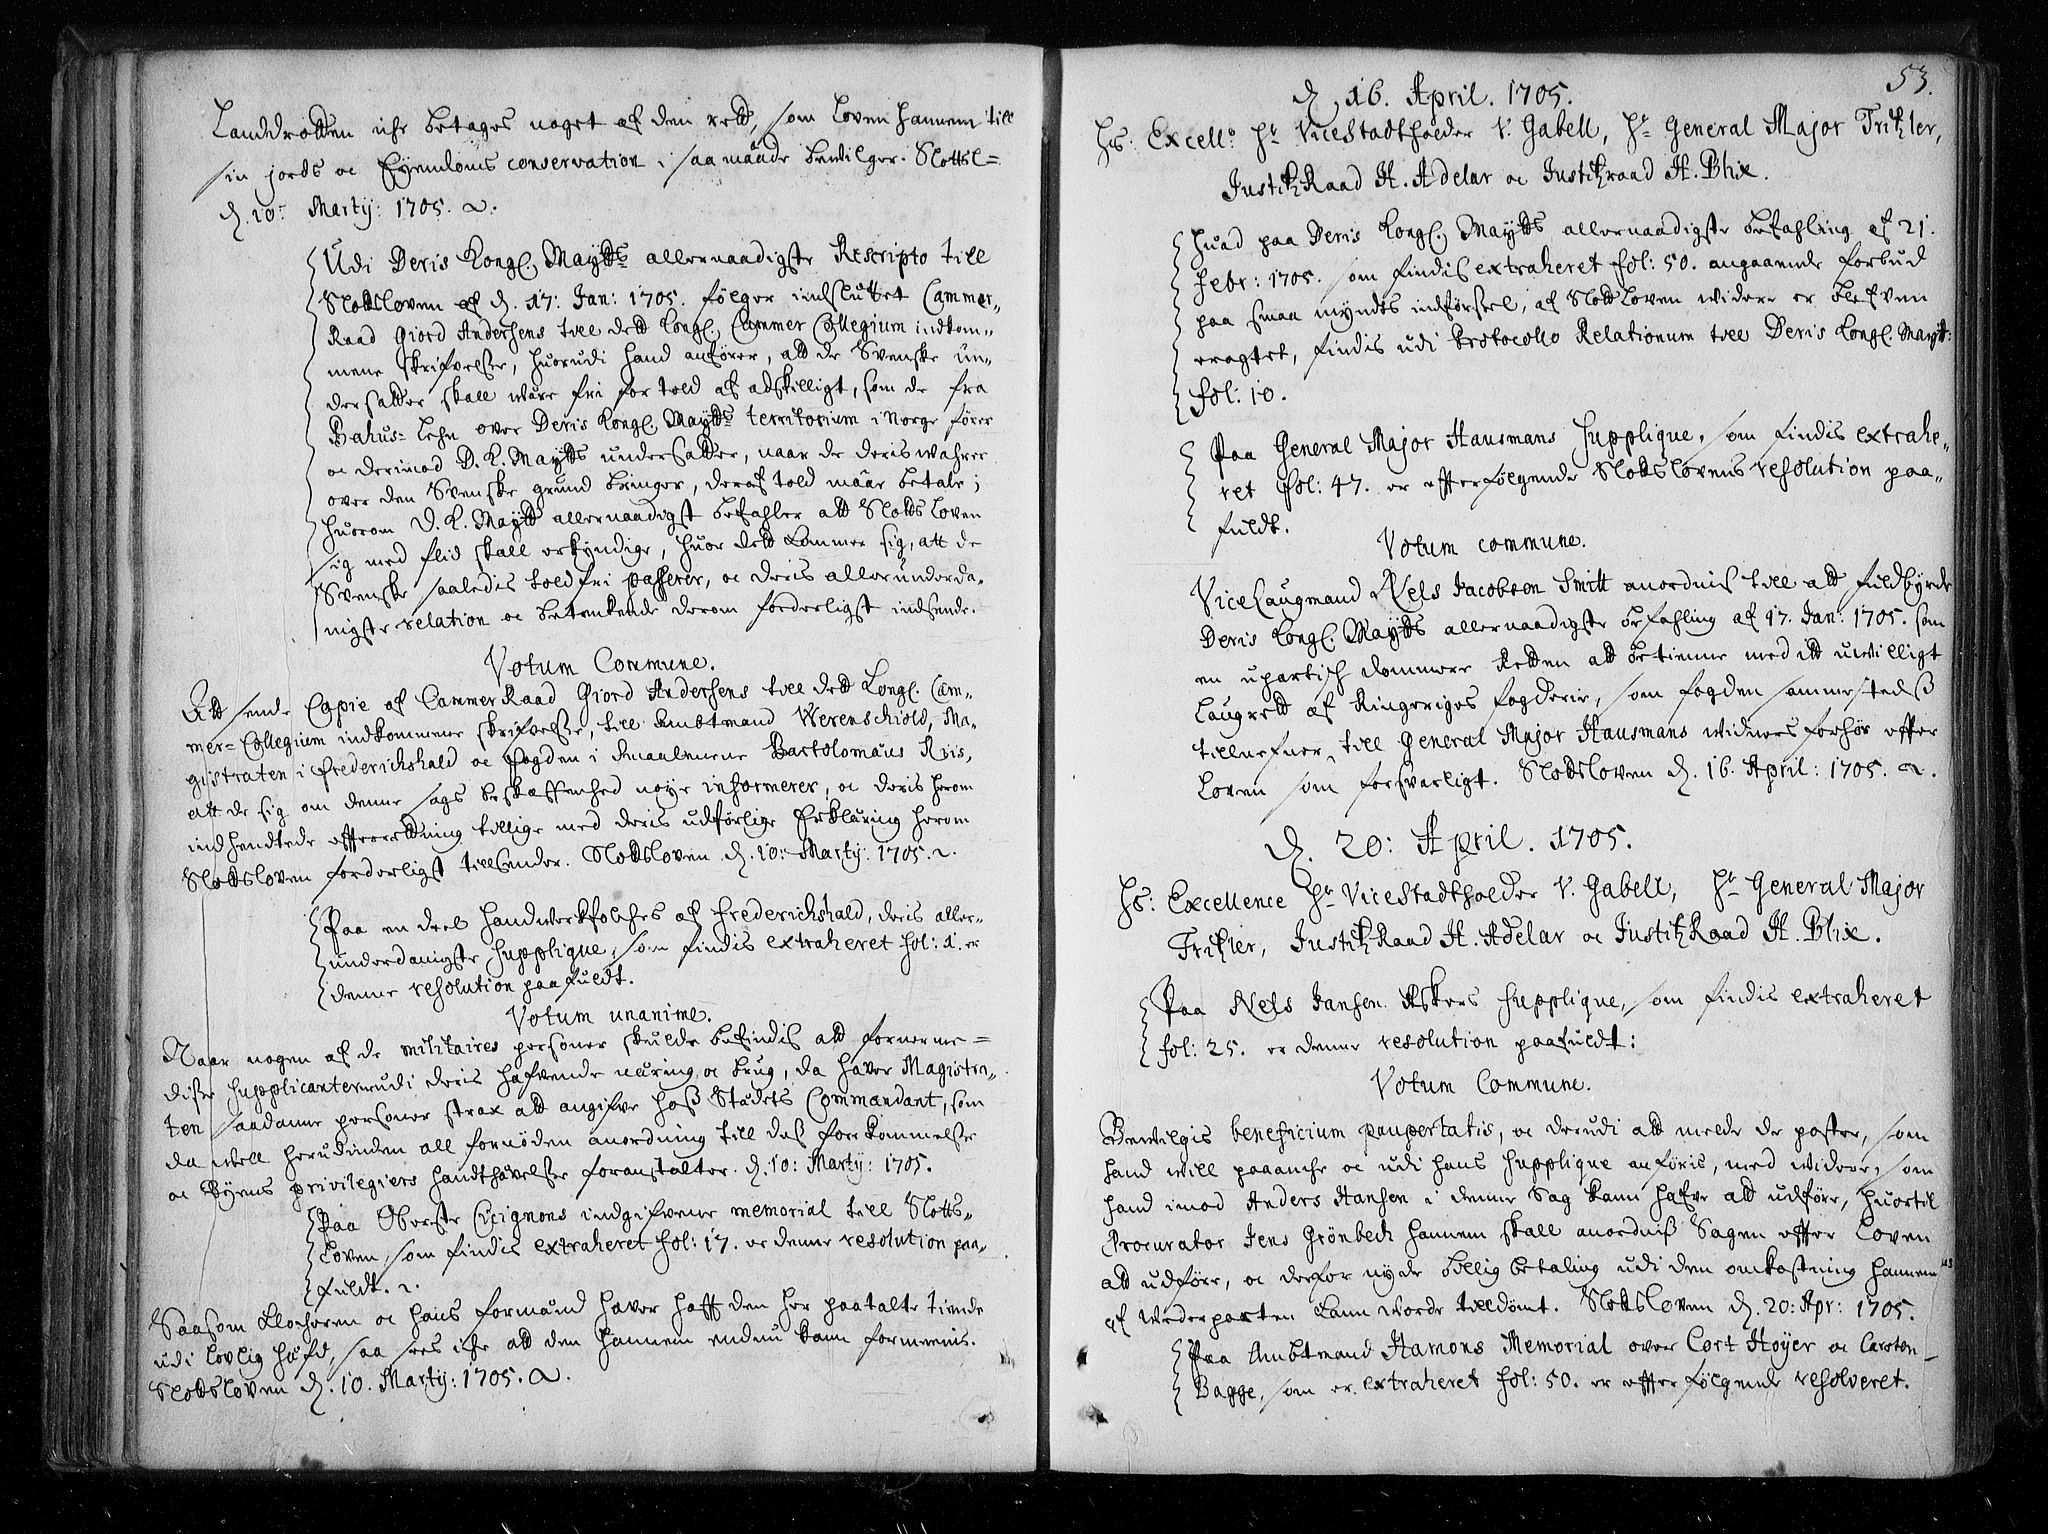 Landdrotten iche betages noget af den rett, som Loven hannem till
sin jords oc Eyendoms conservation i saa maade bevilger. Slottsl=
d. 10: Martij: 1705.
Udi Deris Kongl. Maytts allernaadigste Rescripto till
Slodsloven af d. 17: Jan: 1705. følger indsluttet Cammer-
Raad Giord Andersens till dett Kongl. Cammer Collegium indkom-
mene skrifvelse, huorudi hand anfører, att de Svenske un-
dersatter skall være fri for told af adskilligt, som de fra
Bahus-Lehn over Deris Kongl. Maytts territorium i Norge fører
oc derimod D. K. Maytts undersatter, naar de deris wahrer
over den Svenske grund bringer, deraf told maae betale;
huorom D. K. Maytt allernaadigst befahler att Slottsloven
sig med flid skall erkyndige, huor dett kommer sig, att de
Svenske saaledis toldfri passerer, oc deris allerunderda-
nigste relation oc betenkende derom forderligst indsende.
Votum Commune.
Att sende Copie af CammerRaad Giord Andersens till dett Kongl. Cam-
mer-Collegium indkommene skrifvelse, till Ambtmand Werenschiold, Ma-
gistraten i Frederichshald oc fogden i Smaalenene Bartolomæus Riis,
att de sig om denne sags beskaffenhed nøye informerer, oc deris herom
indhendtede efterretning tillige med deris udførlige Erklæring herom
Slodsloven forderligst tillsender. Slodsloven d. 10: Martij: 1705.
Paa en deel handwerksfolches af Frederichshald, deris aller-
underdanigste Supplique, som findis extraheret fol: 1. er
denne resolution paafuldt.
Votum unanime.
Naar nogen af de militaires personer skulde befindis att fornerme-
disse Supplicanter udi deris hafvende næring oc brug, da haver Magistra-
ten saadanne personer strax att angifve hoss Stadets Commandant, som
da well herudinden all fornøden anordning till dess forekommelse
oc Byens privilegiers handthævelse foranstalter. d. 10: Martij: 1705.
Paa Oberste Cicignons indgifvene memorial till Slotts-
Loven, som findis extraheret fol: 17. er denne resolution paa-
fuldt.
Saasom Klocheren oc hans formand haver hafft den her paatalte tiende
udi lovlig hæfd, saa sees iche att den hannem endnu kann formeenis.
Slodsloven d. 10. Martij: 1705.
53.
d. 16. April. 1705.
Hs: Excell: Hr ViceStadtholder V. Gabell, Hr General Major Tritzler,
JustitzRaad H. Adelar oc Justitzraad H. Blix.
Huad paa Deris Kongl. Maytts allernaadigste befahling af 21.
Febr: 1705. som findis extraheret fol: 50. angaaende forbud
paa smaa myndts indførsel, af Slottsloven widere er blefven
eragtet, findis udi Protocollo Relationum till Deris Kongl. Maytt:
fol: 10.
Paa General Major Hausmans Supplique, som findis extrahe-
ret fol: 47. er efterfølgende Slodslovens resolution paa-
fuldt.
Votum commune.
ViceLaugmand Niels Jacobsen Smitt anordnis till att fuldbyrde
Deris Kongl. Maytts allernaadigste befahling af 17. Jan: 1705. som
en upartisch dommere Retten att betienne med itt uwilligt
Laugrett af Ringeriges fogderie, som fogden sammesteds
tillnefner, till General Major Hausmans widnesforhør effter
Loven som forsvarligt. Slodsloven d. 16. April: 1705.
d. 20: April. 1705.
Hs: Excellence Hr ViceStadtholder V. Gabell, Hr General Major
Tritzler, JustitzRaad H. Adelar oc JustitzRaad H. Blix.
Paa Niels Jansen Askers Supplique, som findis extraheret
fol: 25. er denne resolution paafuldt:
Votum Commune.
Bewilgis beneficium paupertatis, oc derudi att melde de poster, som
hand will paaanche oc udi hans Supplique anføris, med widere, som
hand imod Anders Hansen i denne Sag kann hafve att udføre, huortil
Procurator Jens Grönbech hannem skall anordnis Sagen effter Loven
att udføre, oc derfor nyde billig betaling udi den omkostning hannem
af wederparten kann worde tilldømt. Slodsloven d. 20: Apr: 1705.
Paa Ambtmand Hamons Memorial over Cort Høyer oc Carsten
Bagge, som er extraheret fol: 50. er effter følgende resolveret.